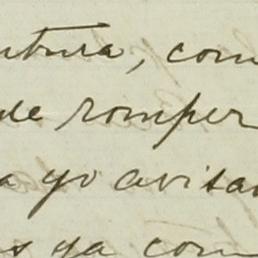 ntura, com
de romper
a yo avisar
s ya com